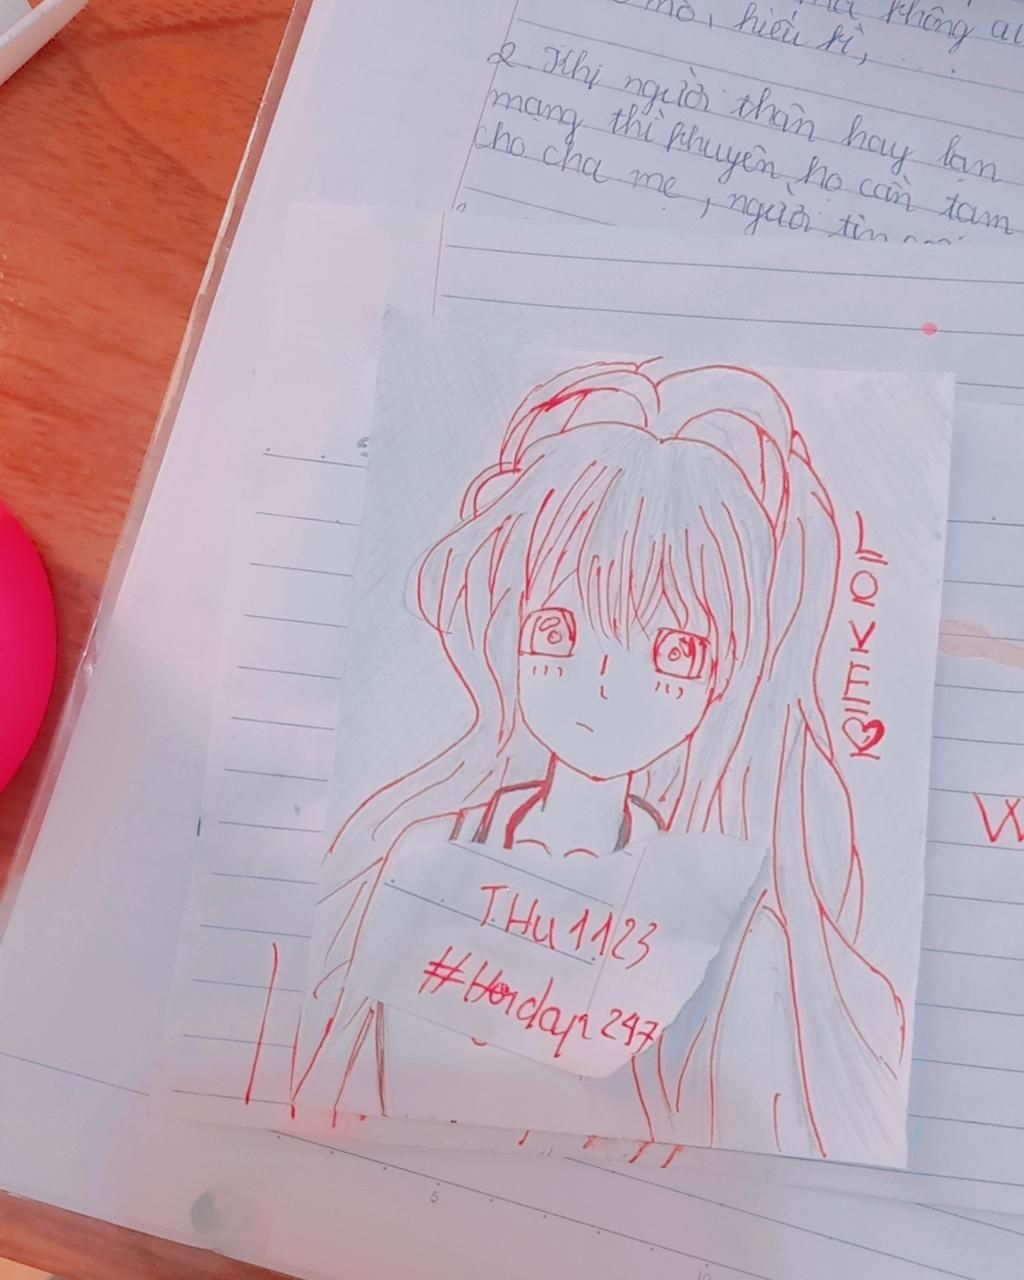 không ai
mò, hiếu kì, . . . .
2. Khi người thân hay bạn
mạng thì khuyên họ cần tạm
cho cha mẹ, người tin
LOVE
THU1123
#Hoidap247
W
5
10